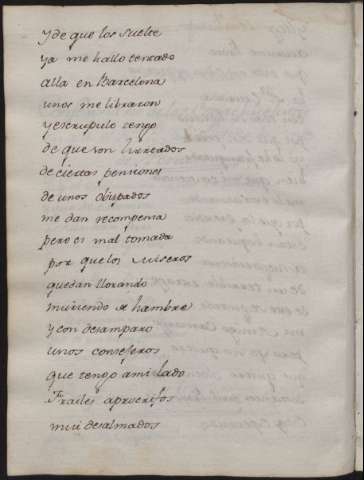 y de que los suelte
ya me hallo tentado
alla en Barcelona
unos me libraron
y escrupulo tengo
de que son hurtados
de ciertas pensiones
de unos obispados
me dan recompensa
pero es mal tomada
por que los miseros
quedan llorando
muriendo de hambre
y con desamparo
unos consejeros
que tengo a mi lado
Frailes apocrifos
mui desalmados